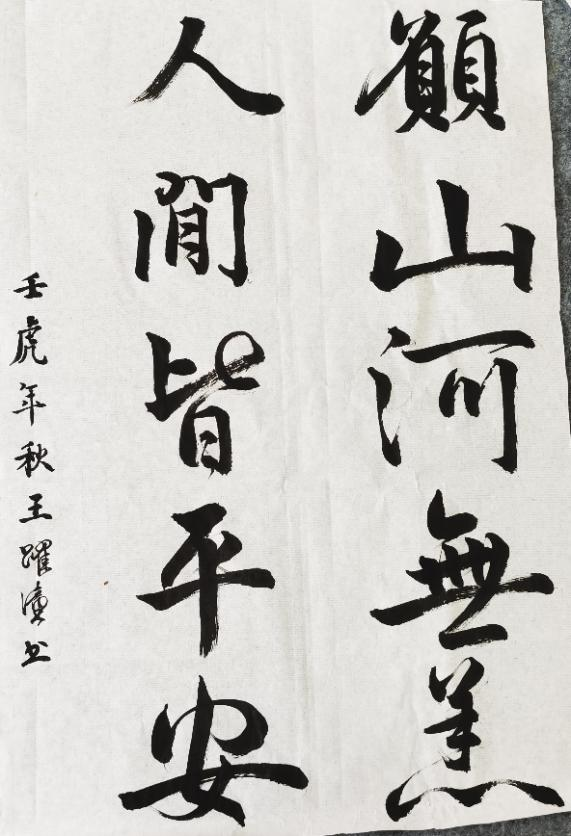 願山河無恙
人間皆平安
壬虎年秋王躍潼书